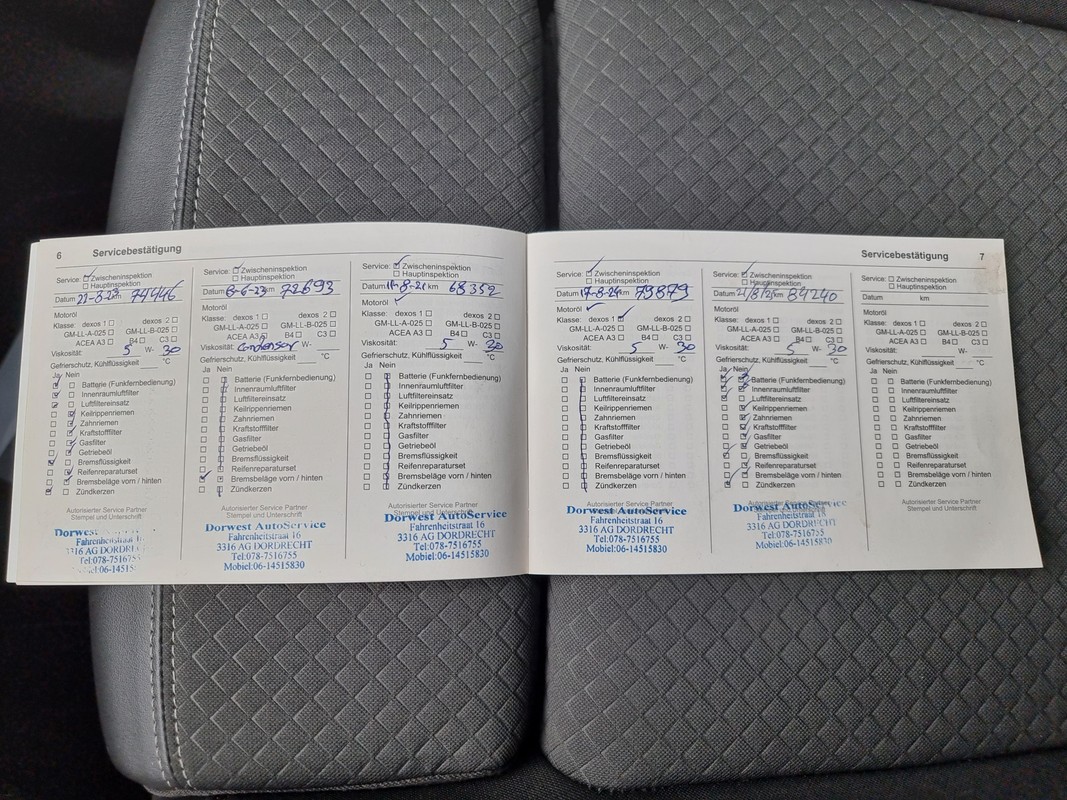 6 Servicebestätigung
Service: Zwischeninspektion
Hauptinspektion
Datum 22-8-23 km 74446
Motoröl
Klasse: dexos 1 dexos 2
GM-LL-A-025 GM-LL-B-025
ACEA A3 B4 C3
Viskosität: 5 W- 30
Gefrierschutz, Kühlflüssigkeit °C
Ja Nein
Batterie (Funkfernbedienung)
Innenraumluftfilter
Luftfiltereinsatz
Keilrippenriemen
Zahnriemen
Kraftstofffilter
Gasfilter
Getriebeöl
Bremsflüssigkeit
Reifenreparaturset
Bremsbeläge vorn / hinten
Zündkerzen
Autorisierter Service Partner
Stempel und Unterschrift
Dorwest
Fahrenheitstraat
3316 AG DORDRE
Tel:078-751675
06-1451
Service: Zwischeninspektion
Hauptinspektion
Datum 8-6-23 km 72693
Motoröl
Klasse: dexos 1 dexos 2
GM-LL-A-025 GM-LL-B-025
ACEA A3 B4 C3
Viskosität: Condensor W-
Gefrierschutz, Kühlflüssigkeit °C
Ja Nein
Batterie (Funkfernbedienung)
Innenraumluftfilter
Luftfiltereinsatz
Keilrippenriemen
Zahnriemen
Kraftstofffilter
Gasfilter
Getriebeöl
Bremsflüssigkeit
Reifenreparaturset
Bremsbeläge vorn / hinten
Zündkerzen
Autorisierter Service Partner
Stempel und Unterschrift
Dorwest AutoService
Fahrenheitstraat 16
3316 AG DORDRECHT
Tel:078-7516755
Mobiel:06-14515830
Service: Zwischeninspektion
Hauptinspektion
Datum 11-8-21 km 68352
Motoröl
Klasse: dexos 1 dexos 2
GM-LL-A-025 GM-LL-B-025
ACEA A3 B4 C3
Viskosität: 5 W- 30
Gefrierschutz, Kühlflüssigkeit °C
Ja Nein
Batterie (Funkfernbedienung)
Innenraumluftfilter
Luftfiltereinsatz
Keilrippenriemen
Zahnriemen
Kraftstofffilter
Gasfilter
Getriebeöl
Bremsflüssigkeit
Reifenreparaturset
Bremsbeläge vorn / hinten
Zündkerzen
Autorisierter Service Partner
Stempel und Unterschrift
Dorwest AutoService
Fahrenheitstraat 16
3316 AG DORDRECHT
Tel:078-7516755
Mobiel:06-14515830
Servicebestätigung 7
Service: Zwischeninspektion
Hauptinspektion
Datum 17-8-24 km 79879
Motoröl
Klasse: dexos 1 dexos 2
GM-LL-A-025 GM-LL-B-025
ACEA A3 B4 C3
Viskosität: 5 W- 30
Gefrierschutz, Kühlflüssigkeit °C
Ja Nein
Batterie (Funkfernbedienung)
Innenraumluftfilter
Luftfiltereinsatz
Keilrippenriemen
Zahnriemen
Kraftstofffilter
Gasfilter
Getriebeöl
Bremsflüssigkeit
Reifenreparaturset
Bremsbeläge vorn / hinten
Zündkerzen
Autorisierter Service Partner
Stempel und Unterschrift
Dorwest AutoService
Fahrenheitstraat 16
3316 AG DORDRECHT
Tel:078-7516755
Mobiel:06-14515830
Service: Zwischeninspektion
Hauptinspektion
Datum 21/8/25 km 84240
Motoröl
Klasse: dexos 1 dexos 2
GM-LL-A-025 GM-LL-B-025
ACEA A3 B4 C3
Viskosität: 5 W- 30
Gefrierschutz, Kühlflüssigkeit °C
Ja Nein
Batterie (Funkfernbedienung)
Innenraumluftfilter
Luftfiltereinsatz
Keilrippenriemen
Zahnriemen
Kraftstofffilter
Gasfilter
Getriebeöl
Bremsflüssigkeit
Reifenreparaturset
Bremsbeläge vorn / hinten
Zündkerzen
Autorisierter Service Partner
Dorwest AutoService
Fahrenheitstraat 16
3316 AG DORDRECHT
Tel:078-7516755
Mobiel:06-14515830
Service: Zwischeninspektion
Hauptinspektion
Datum km
Motoröl
Klasse: dexos 1 dexos 2
GM-LL-A-025 GM-LL-B-025
ACEA A3 B4 C3
Viskosität: W-
Gefrierschutz, Kühlflüssigkeit °C
Ja Nein
Batterie (Funkfernbedienung)
Innenraumluftfilter
Luftfiltereinsatz
Keilrippenriemen
Zahnriemen
Kraftstofffilter
Gasfilter
Getriebeöl
Bremsflüssigkeit
Reifenreparaturset
Bremsbeläge vorn / hinten
Zündkerzen
Autorisierter Service Partner
Stempel und Unterschrift